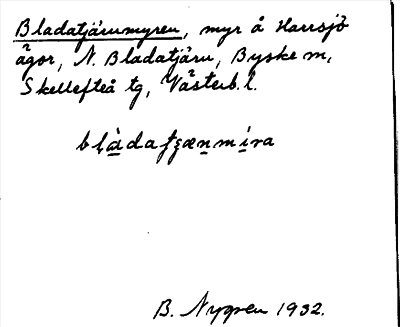 Bladatjärnmyren, myr å Harrsjö
ägor, N. Bladatjärn, Byske m,
Skellefteå tg, Västerb. l.
blàdafʂænmíra
B. Nygren 1932.